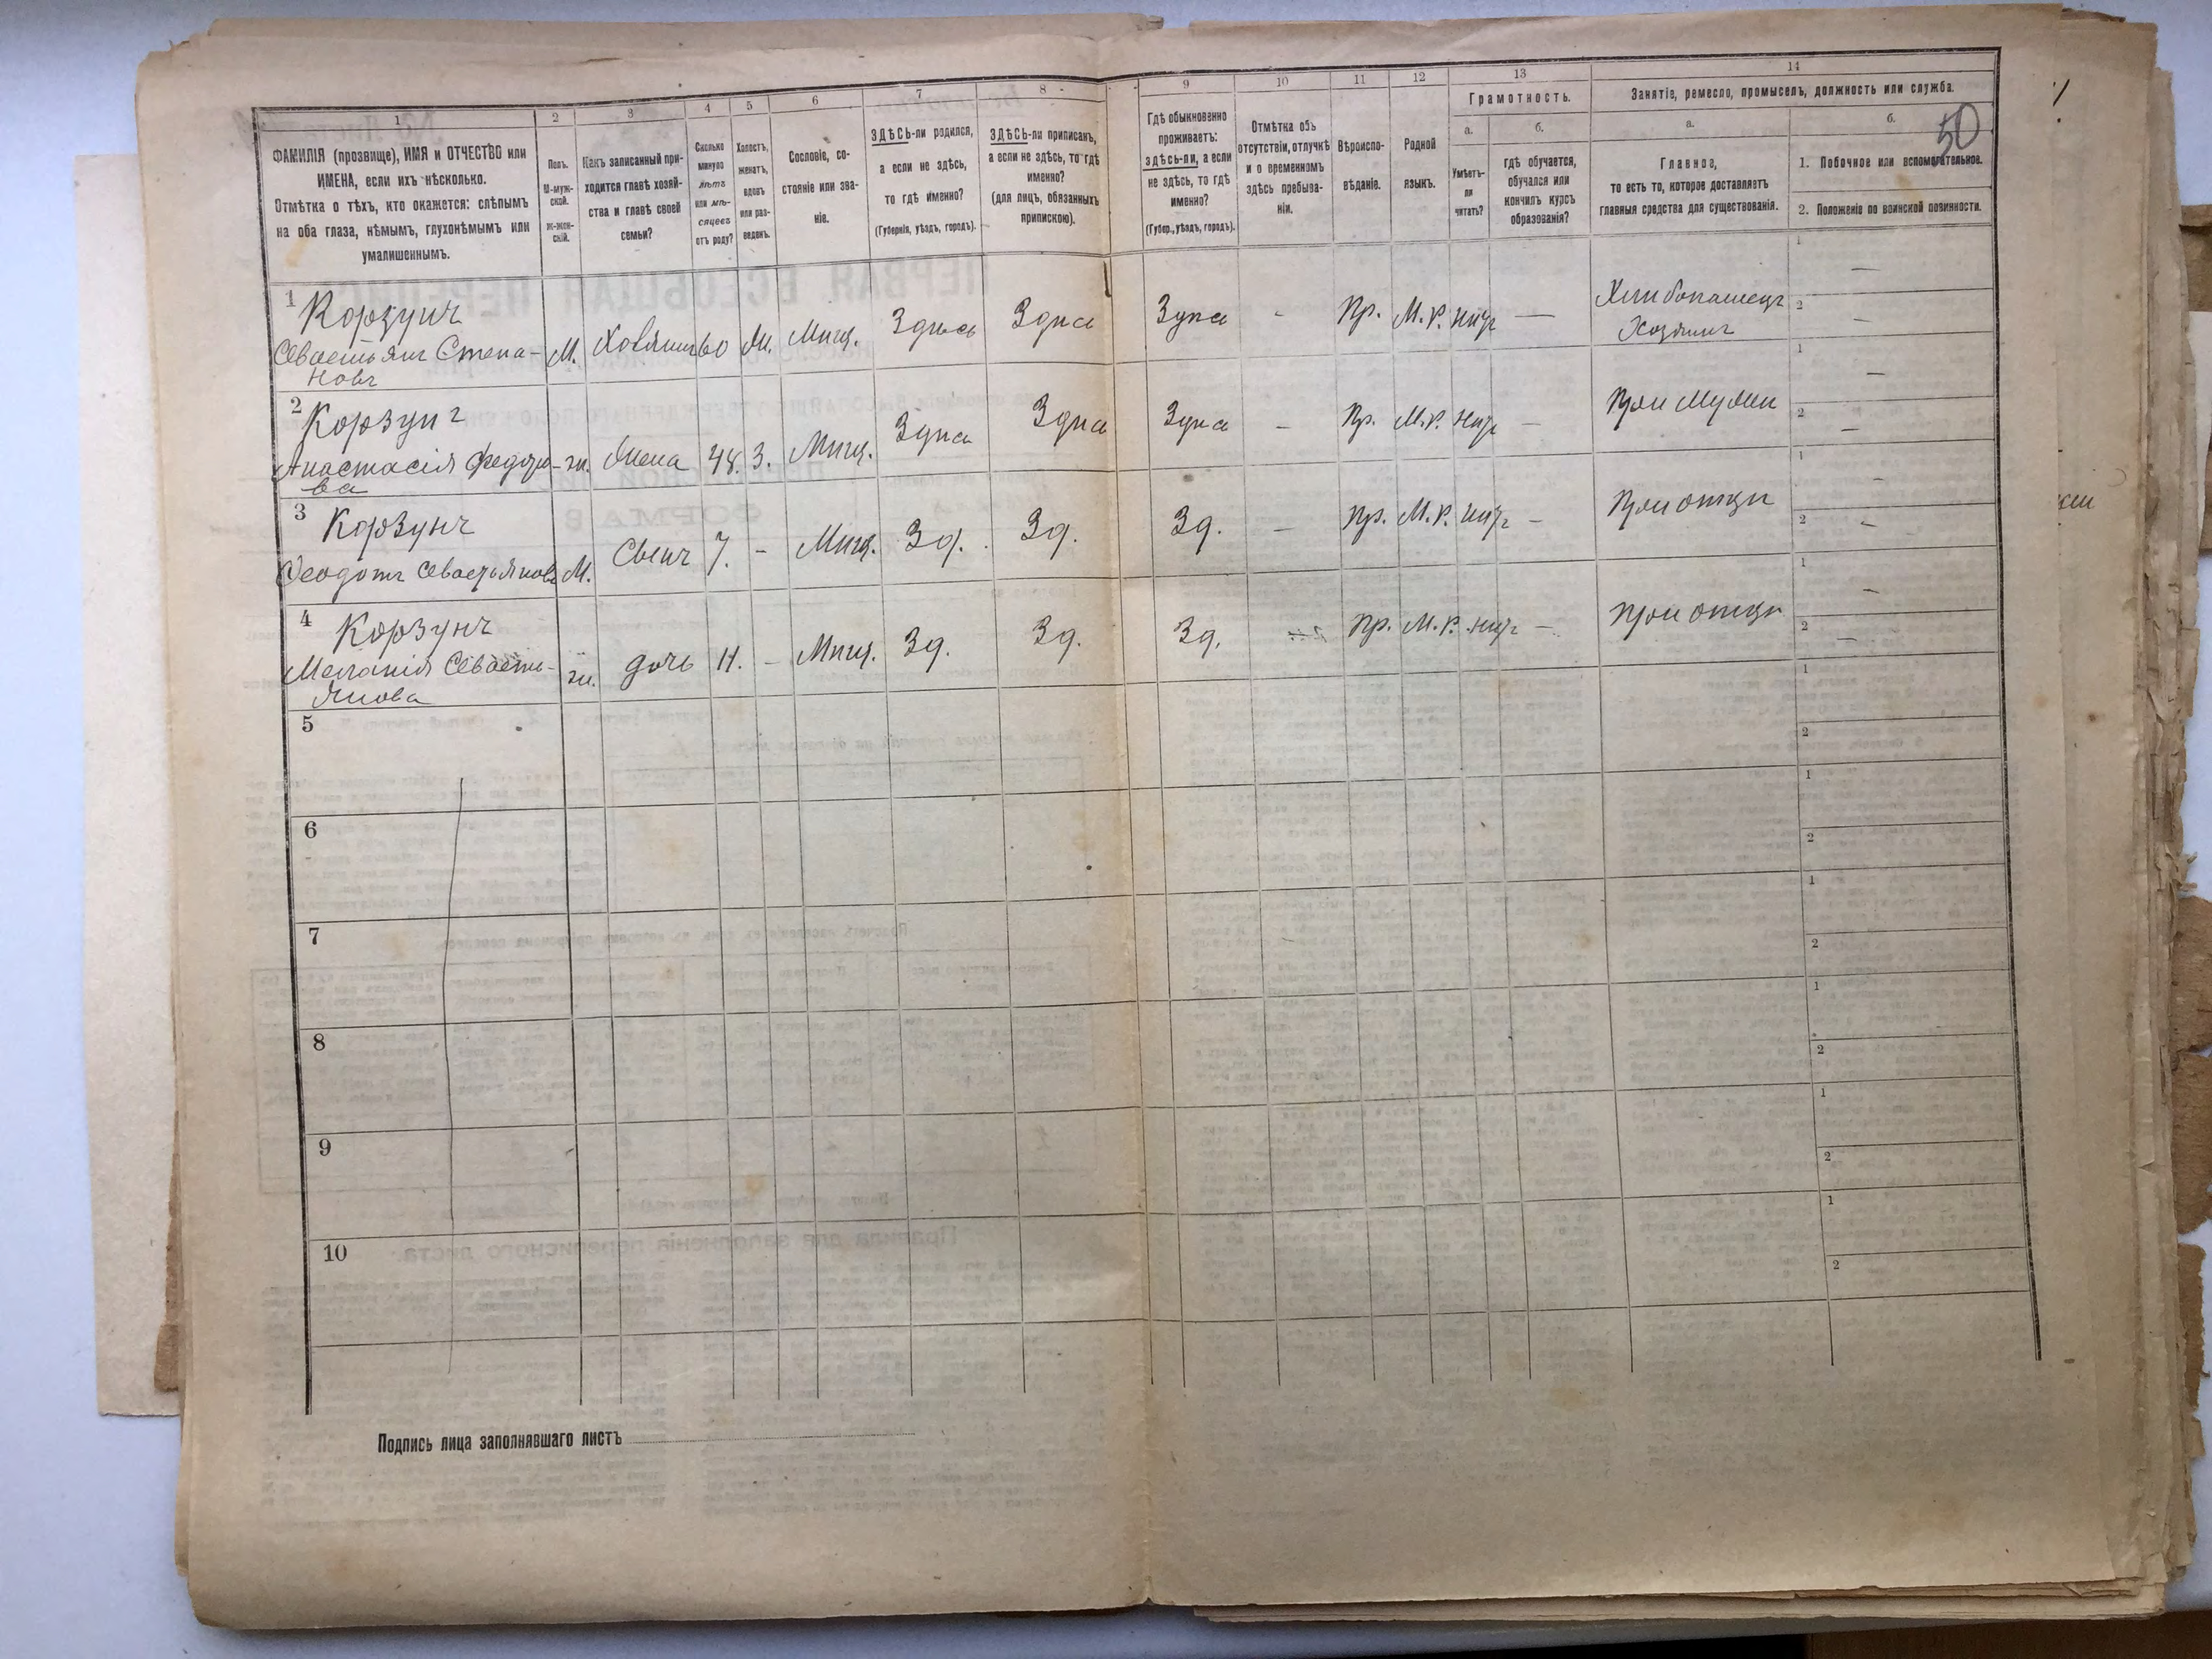 1 2 3 4 5 6 7 8 9 10 11 12 13 14
ФАМИЛІЯ (прозвище), ИМЯ и ОТЧЕСТВО или
ИМЕНА, если ихъ нѣсколько.
Отмѣтка о тѣхъ, кто окажется: слѣпымъ
на оба глаза, нѣмымъ, глухонѣмымъ или
умалишеннымъ.
Полъ.
М-муж-
ской.
Ж-жен-
скій.
Какъ записанный при-
ходится главѣ хозяй-
ства и главѣ своей
семьи?
Сколько
минуло
лѣтъ
или мѣ-
сяцевъ
отъ роду?
Холостъ,
женатъ,
вдовъ
или раз-
веденъ.
Сословіе, со-
стояніе или зва-
ніе.
ЗДѢСЬ-ли родился,
а если не здѣсь,
то гдѣ именно?
(Губернія, уѣздъ, городъ).
ЗДѢСЬ-ли приписанъ,
а если не здѣсь, то гдѣ
именно?
(для лицъ, обязанныхъ
припискою).
Гдѣ обыкновенно
проживаетъ:
здѣсь-ли, а если
не здѣсь, то гдѣ
именно?
(Губер., уѣздъ, городъ).
Отмѣтка объ
отсутствіи, отлучкѣ
и о временномъ
здѣсь пребыва-
ніи.
Вѣроиспо-
вѣданіе.
Родной
языкъ.
Грамотность.
а.
Умѣетъ-
ли
читать?
б.
гдѣ обучается,
обучался или
кончилъ курсъ
образованія?
Занятіе, ремесло, промыселъ, должность или служба.
а.
Главное,
то есть то, которое доставляетъ
главныя средства для существованія.
б.
50
1. Побочное или вспомогательное.
2. Положеніе по воинской повинности.
1 Корзунъ
Севастьянъ Степа-
новъ
М. Хозяинъ 60 Ж. Мѣщ. Здѣсь Здѣсь Здѣсь - Пр. М.Р. нѣтъ —
Хлѣбопашецъ
Хозяинъ
1 —
2 —
2 Корзунъ
Анастасія Федоро-
ва
ж. Жена 48. З. Мѣщ. Здѣсь Здѣсь Здѣсь - Пр. М.Р. нѣтъ - При мужѣ
1 —
2 —
3 Корзунъ
Ѳеодотъ Севастьяновъ
М. Сынъ 7. - Мѣщ. Зд. Зд. Зд. - Пр. М.Р. нѣтъ - При отцѣ
1 -
2 -
4 Корзунъ
Меланія Севасть-
янова
ж. дочь 11. - Мѣщ. Зд. Зд. Зд. Пр. М.Р. нѣтъ - при отцѣ
1 -
2 —
5
1
2
6
1
2
7
1
2
8
1
2
9
1
2
10
1
2
Подпись лица заполнявшаго листъ